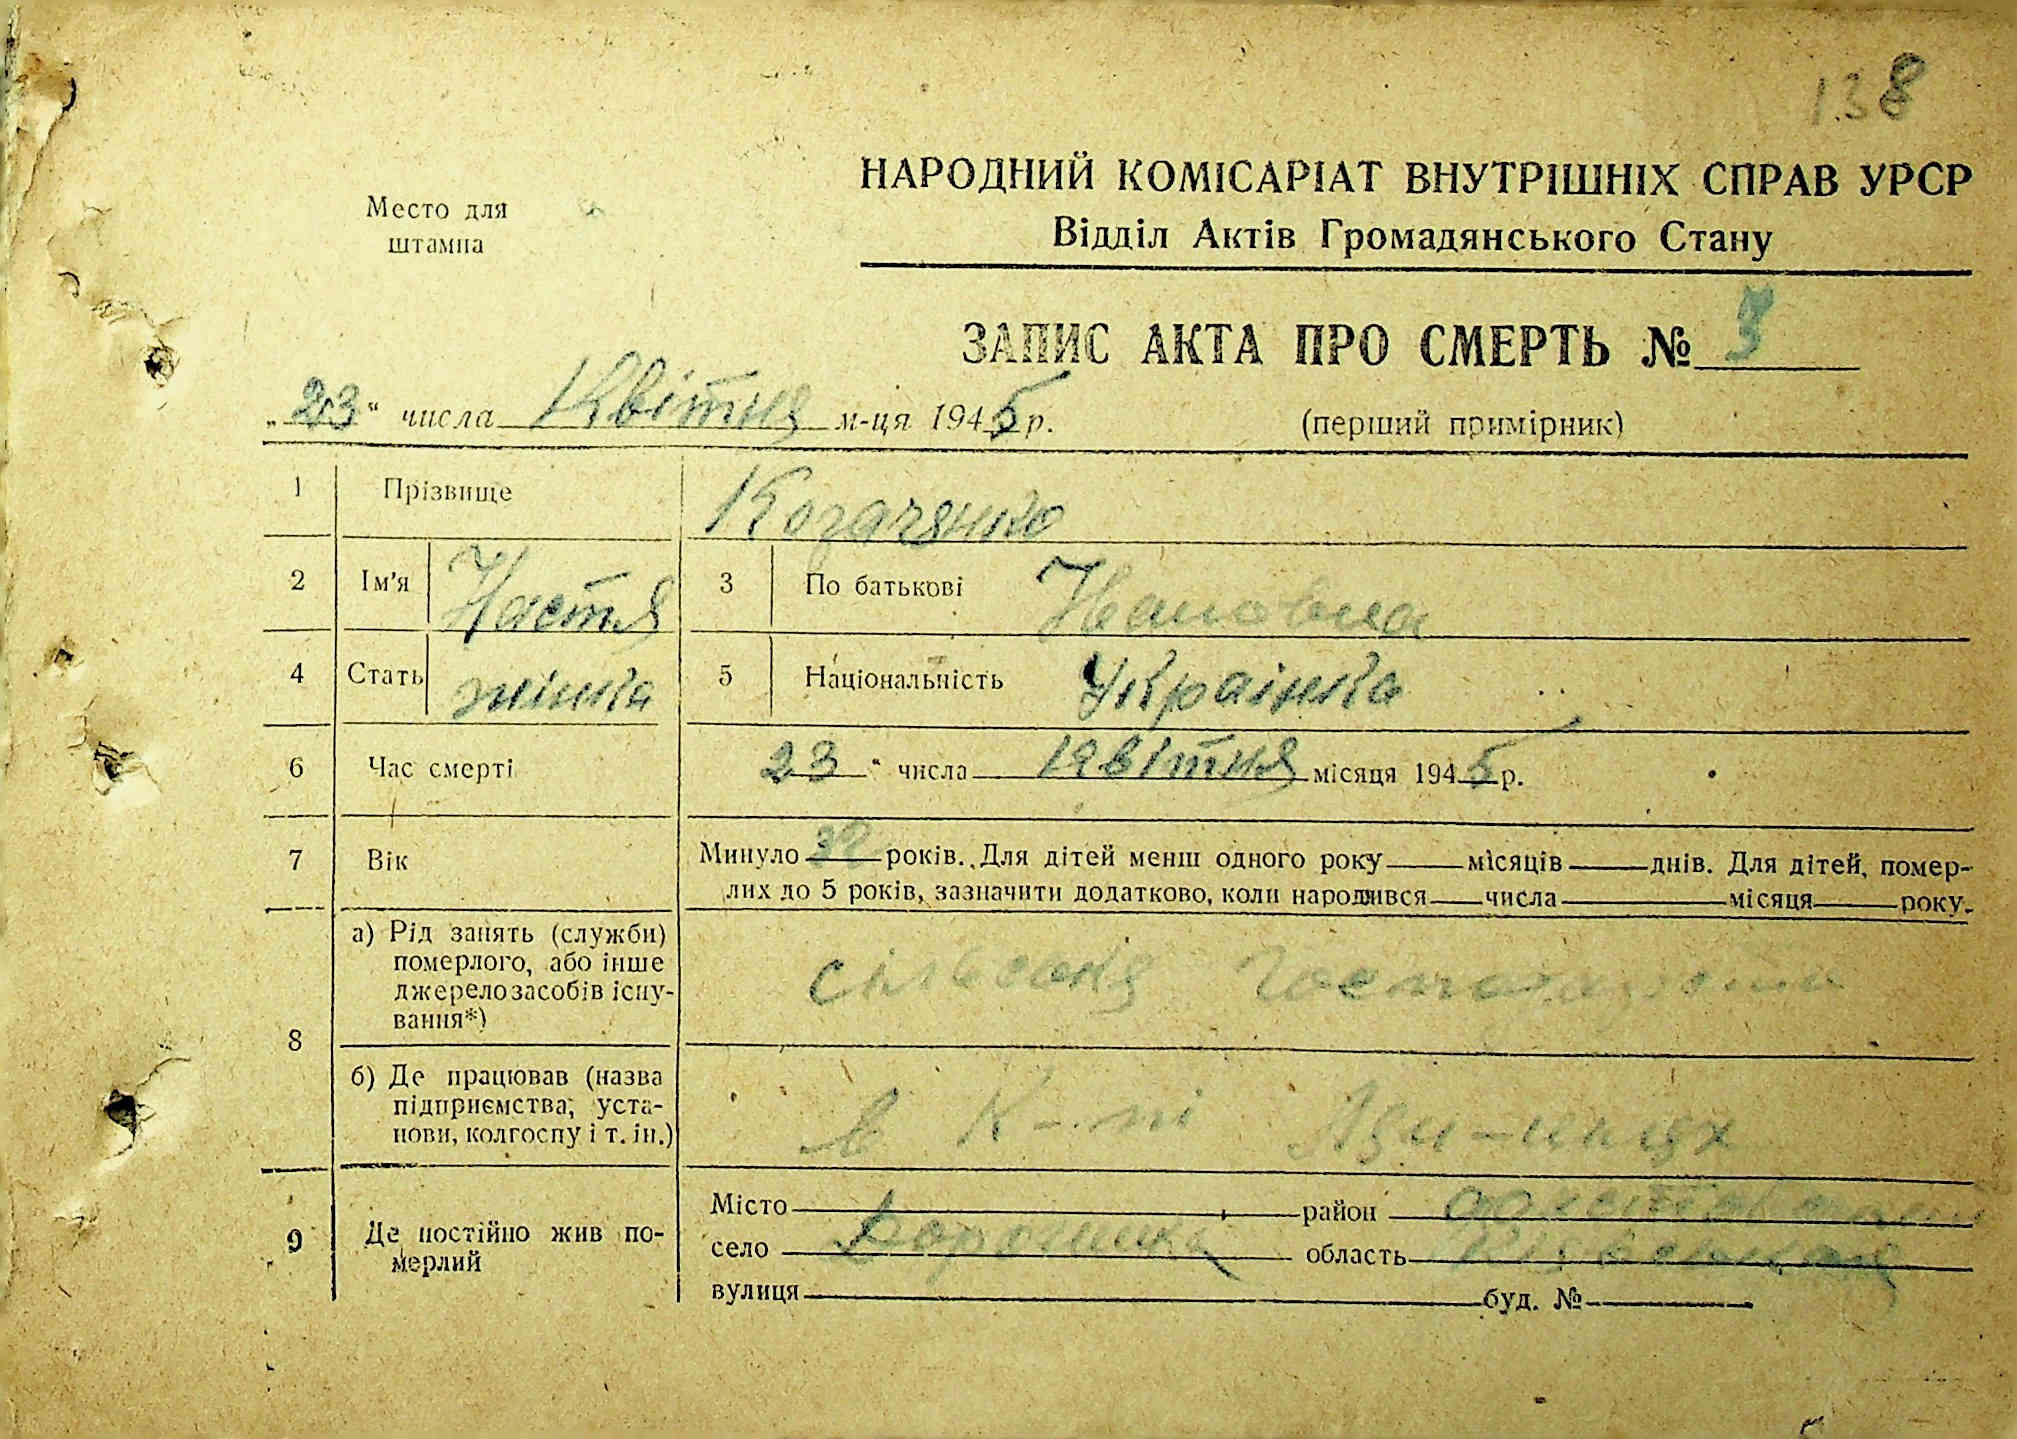 138
НАРОДНИЙ КОМІСАРІАТ ВНУТРІШНІХ СПРАВ УРСР
Место для
штампа
Відділ Актів Громадянського Стану
ЗАПИС АКТА ПРО СМЕРТЬ № 3
„23“ числа Квітня м-ця 1945 р.
(перший примірник)
1 Прізвище Козачянко
2 Ім'я Настя 3 По батькові Івановна
4 Стать жінка 5 Національність Українка
6 Час смерті 23 “ числа квітня місяця 1945 р.
7 Вік Минуло років. Для дітей менш одного року місяців днів. Для дітей, помер-
лих до 5 років, зазначити додатково, коли народився числа місяця року.
8 а) Рід занять (служби)
померлого, або інше
джерело засобів існу-
вання*)
сільське
б) Де працював (назва
підприємства, уста-
нови, колгоспу і т. ін.)
в К-пі
9 Де постійно жив по-
мерлий
Місто район
село область
вулиця буд. №